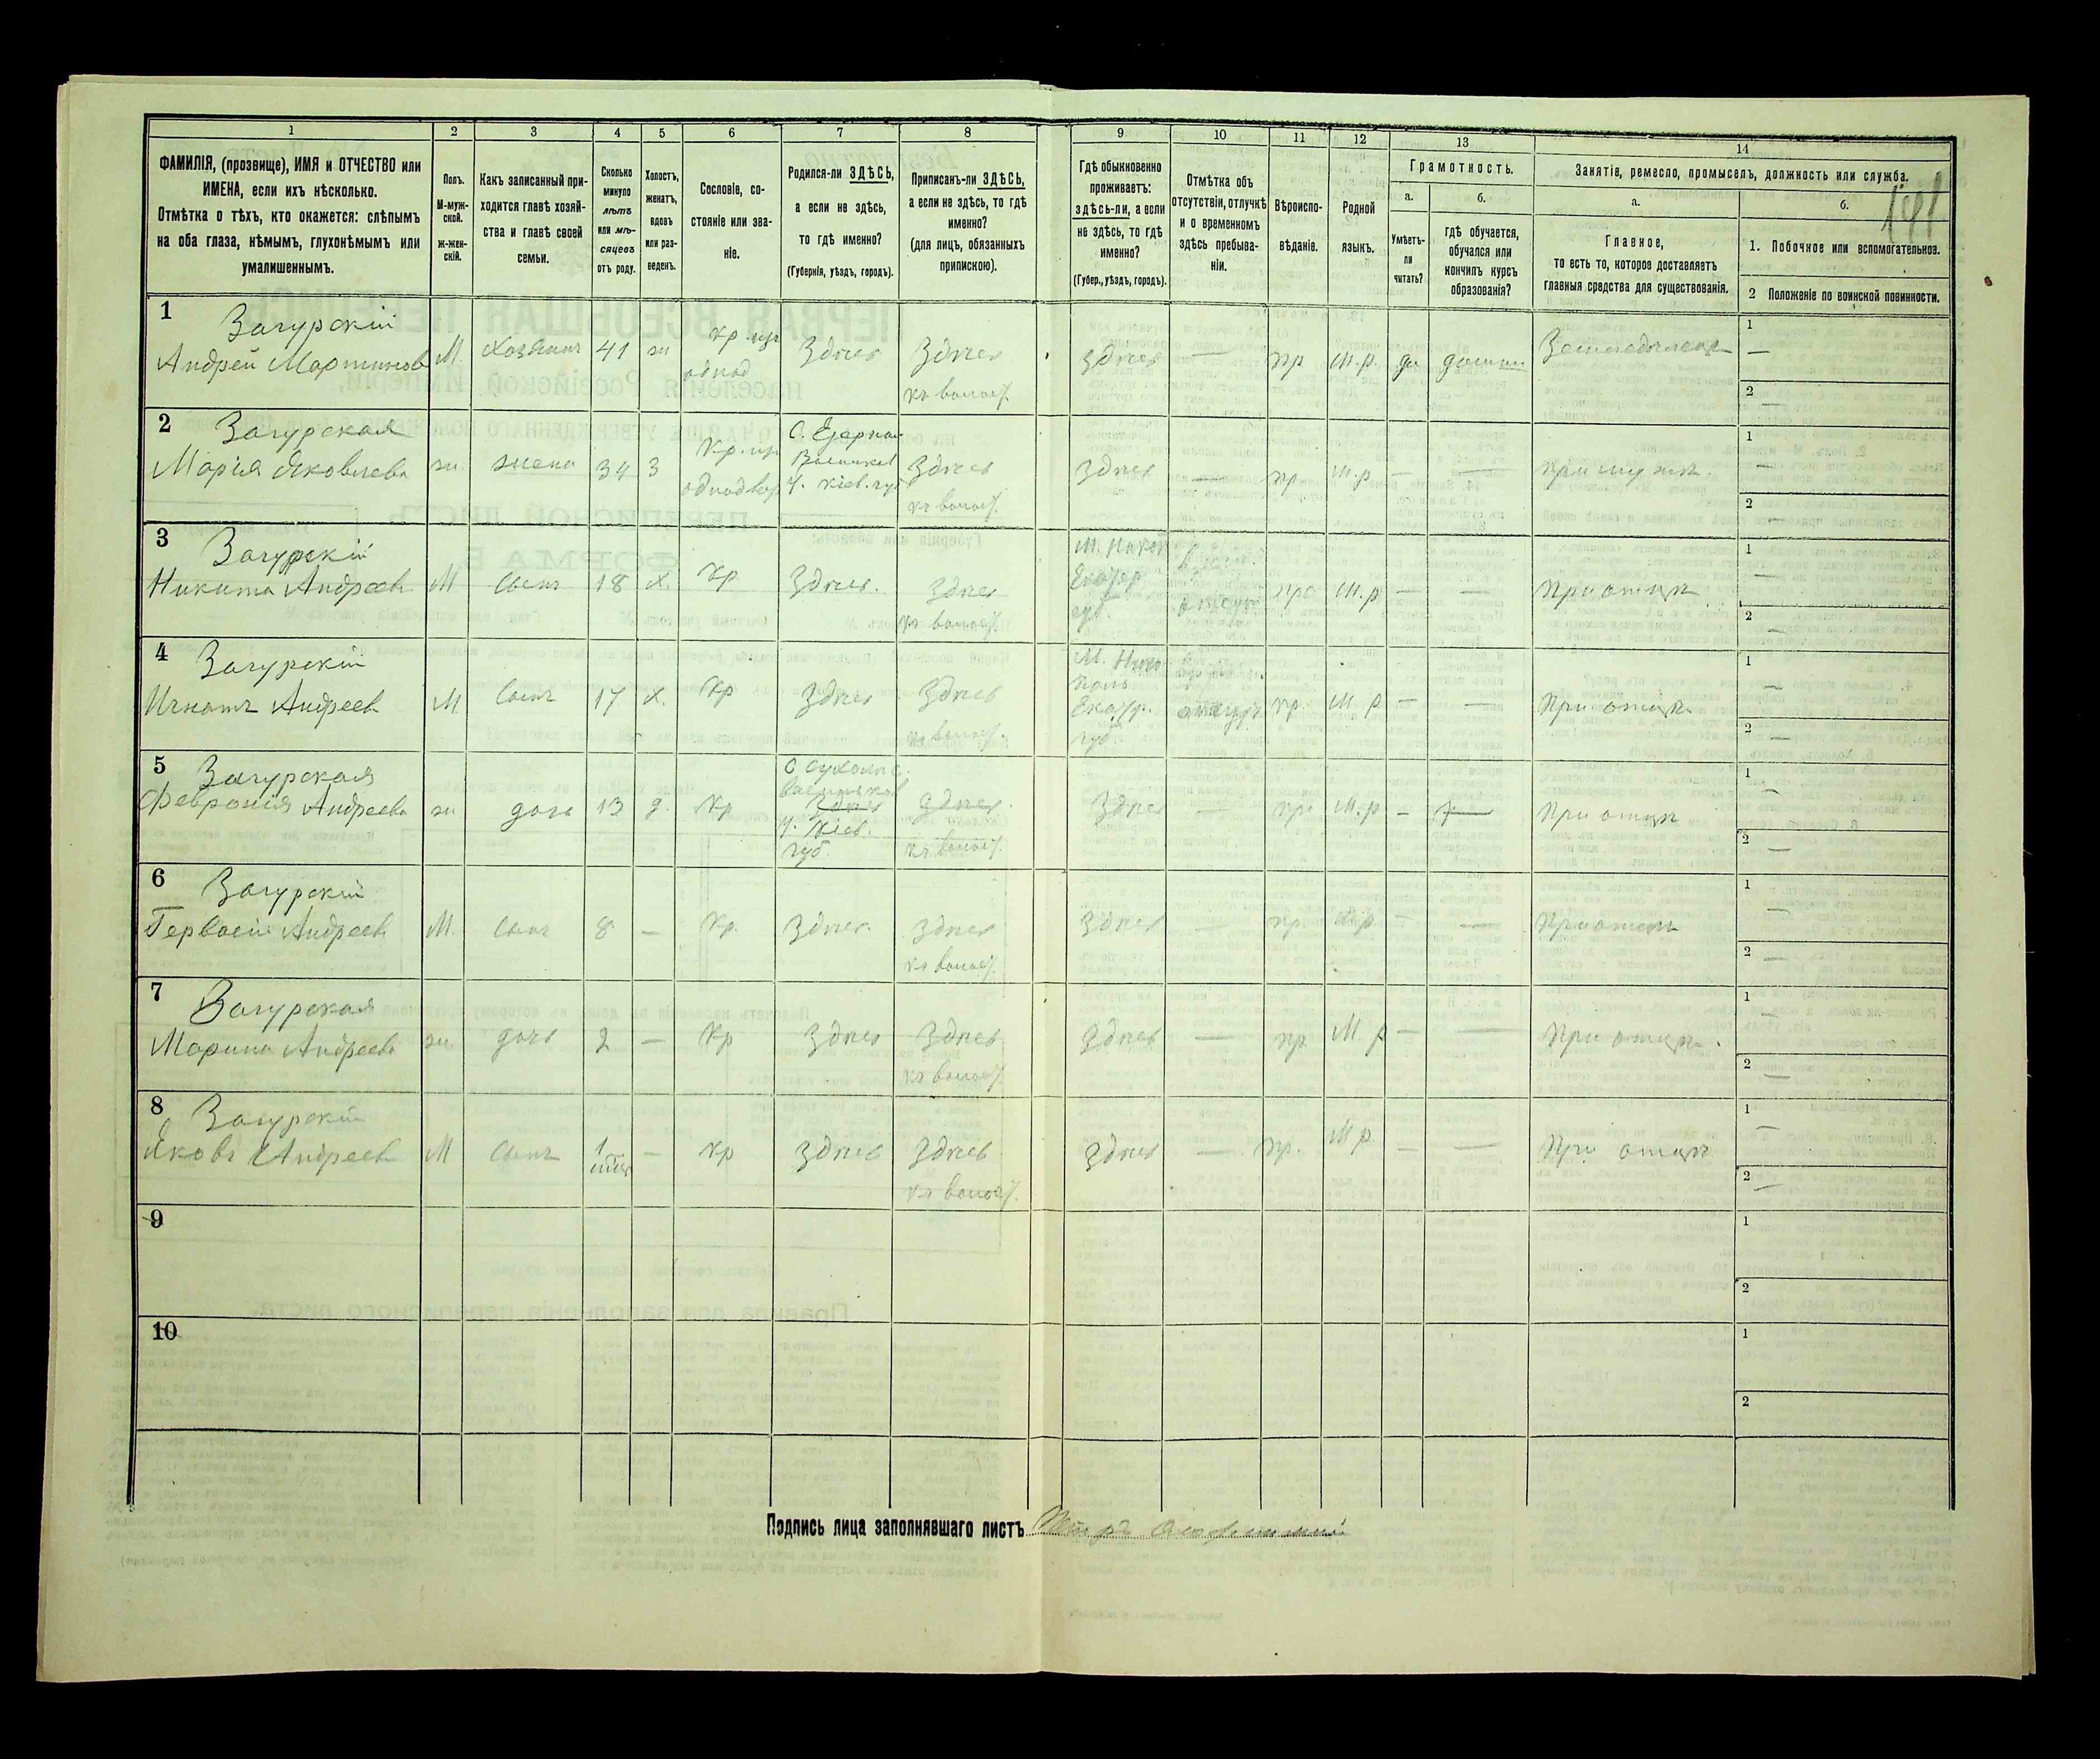 1
2
3
4
5
6
7
8
9
10
11
12
13
14
ФАМИЛІЯ, (прозвище), ИМЯ и ОТЧЕСТВО или
ИМЕНА, если ихъ нѣсколько.
Отмѣтка о тѣхъ, кто окажется: слѣпымъ
на оба глаза, нѣмымъ, глухонѣмымъ или
умалишеннымъ.
Полъ.
М-муж-
ской.
Ж-жен-
скій.
Какъ записанный при-
ходится главѣ хозяй-
ства и главѣ своей
семьи.
Сколько
минуло
лѣтъ
или мѣ-
сяцевъ
отъ роду.
Холостъ,
женатъ,
вдовъ
или раз-
веденъ.
Сословіе, со-
стояніе или зва-
ніе.
Родился-ли ЗДѢСЬ,
а если не здѣсь,
то гдѣ именно?
(Губернія, уѣздъ, городъ).
Приписанъ-ли ЗДѢСЬ,
а если не здѣсь, то гдѣ
именно?
(для лицъ, обязанныхъ
припискою).
Гдѣ обыкновенно
проживаетъ:
здѣсь-ли, а если
не здѣсь, то гдѣ
именно?
(Губер., уѣздъ, городъ).
Отмѣтка объ
отсутствіи, отлучкѣ
и о временномъ
здѣсь пребыва-
ніи.
Вѣроиспо-
вѣданіе.
Родной
языкъ.
Грамотность.
а.
Умѣетъ-
ли
читать?
б.
гдѣ обучается,
обучался или
кончилъ курсъ
образованія?
Занятіе, ремесло, промыселъ, должность или служба.
а.
Главное,
то есть то, которое доставляетъ
главныя средства для существованія.
б.
1. Побочное или вспомогательное.
2 Положеніе по воинской повинности.
1
Загурскій
Андрей Мартиновъ
М.
Хозяинъ
41
ж
Кр. изъ
однод
Здѣсь
Здѣсь
къ волост.
здѣсь
—
пр
м.р.
да
дома
Земледѣлецъ
1 —
2 —
2
Загурская
Марія Яковлева
ж.
жена
34
З
Кр. изъ
однодвор
С. Езерна
Васильков
у. Кіев. гу
Здѣсь
къ волост.
Здѣсь
—
пр
м.р
—
—
при мужѣ.
1 —
2 —
3
Загурскій
Никита Андреевъ
М
Сынъ
18
х.
Кр
Здѣсь.
Здѣсь
къ волост.
Екатер
губ.
м.р
—
—
При отцѣ
1 —
2 —
4
Загурскій
Игнатъ Андреевъ
М.
Сынъ
17
х.
Кр
Здѣсь
Здѣсь
къ волост.
М. Нико
поль
Екатер.
губ
пр.
м р
—
—
При отцѣ
1 —
2 —
5
Загурская
Февронія Андреева
ж
дочь
13
д.
Кр
Васильков
Здѣсь
у. Кіев.
губ.
Здѣсь.
къ волост.
Здѣсь
—
пр.
м.р
—
—
При отцѣ
1 —
2 —
6
Загурскій
Гервасій Андреевъ
М.
Сынъ
8
—
Кр.
Здѣсь.
Здѣсь
къ волост.
Здѣсь
—
пр.
м р
—
—
При отцѣ
1 —
2 —
7
Загурская
Марина Андреева
ж
дочь
2
—
Кр
Здѣсь
Здѣсь
къ волост.
Здѣсь
—
пр.
М. р
—
—
При отцѣ.
1 —
2 —
8
Загурскій
Яковъ Андреевъ
М
Сынъ
1
мѣс
—
Кр
Здѣсь
Здѣсь
къ волост.
Здѣсь
—
пр.
М р.
—
—
При отцѣ
1 —
2 —
9
1
2
10
1
2
Подпись лица заполнявшаго листъ